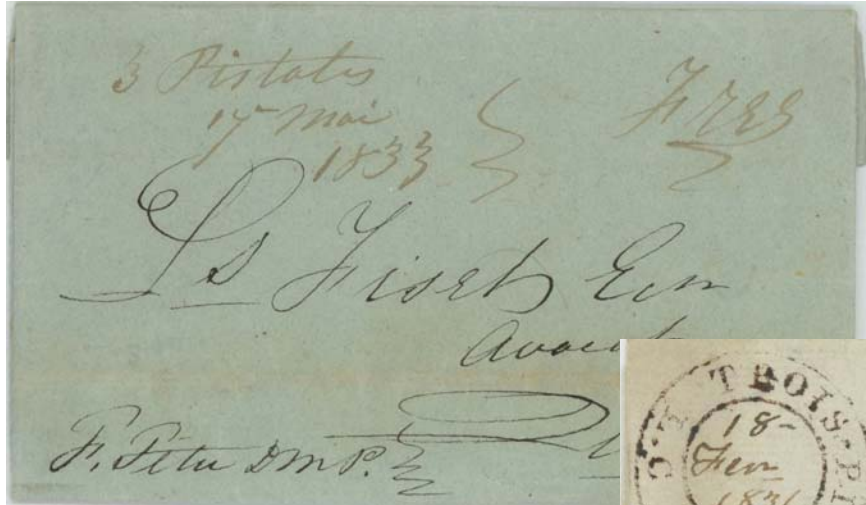 3 Pistoles
17 Mai
1833
Free
Ls Fiset Ecr
Avocat
F. Têtu D M P.
TROIS-PI
18-
Fevr